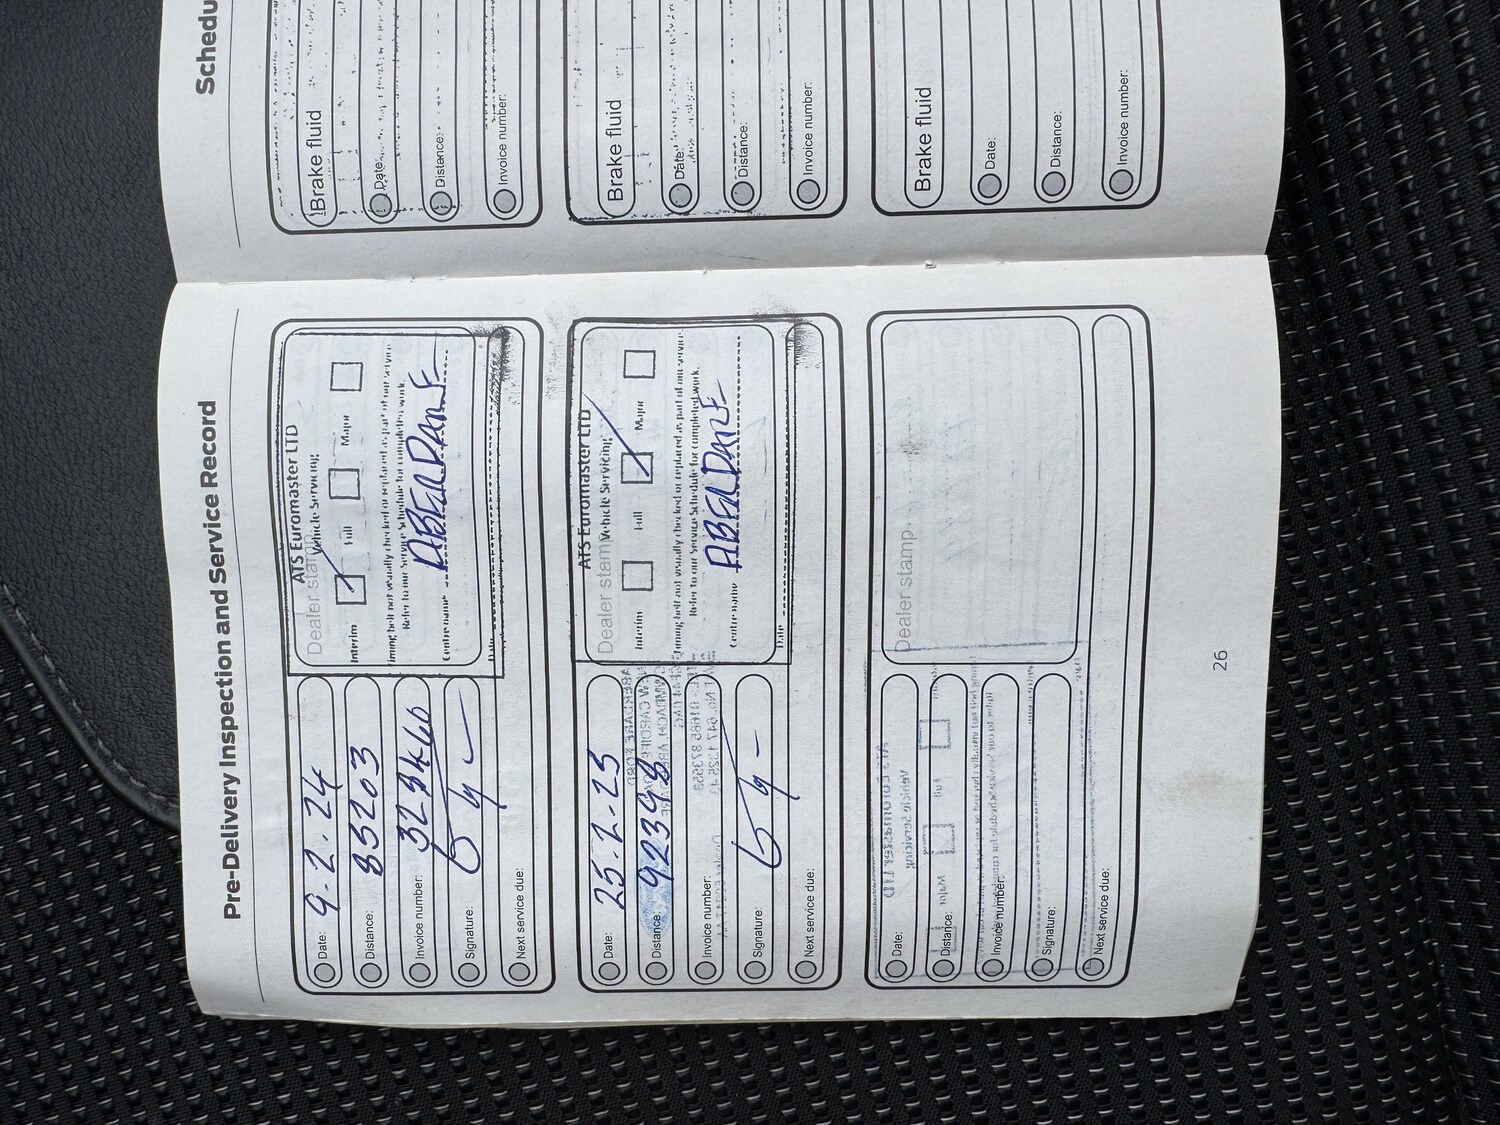 Pre-Delivery Inspection and Service Record
Date: 9-2-24
Distance: 85203
Invoice number:
Signature:
Next service due:
ATS Euromaster LTD
Dealer stamp
Vehicle Servicing
Interim Full Major
Timing belt not visually checked or replaced as part of our service
Refer to our Service Schedule for completed work.
Centre name
Date
Date: 25-2-25
Distance: 92398
Invoice number:
Signature:
Next service due:
ATS Euromaster LTD
Dealer stamp
Vehicle Servicing
Interim Full Major
Timing belt not visually checked or replaced as part of our service
Refer to our Service Schedule for completed work.
Centre name
Date
Date:
Distance:
Invoice number:
Signature:
Next service due:
Dealer stamp
26
Schedu
Brake fluid
Date:
Distance:
Invoice number:
Brake fluid
Date:
Distance:
Invoice number:
Brake fluid
Date:
Distance:
Invoice number: